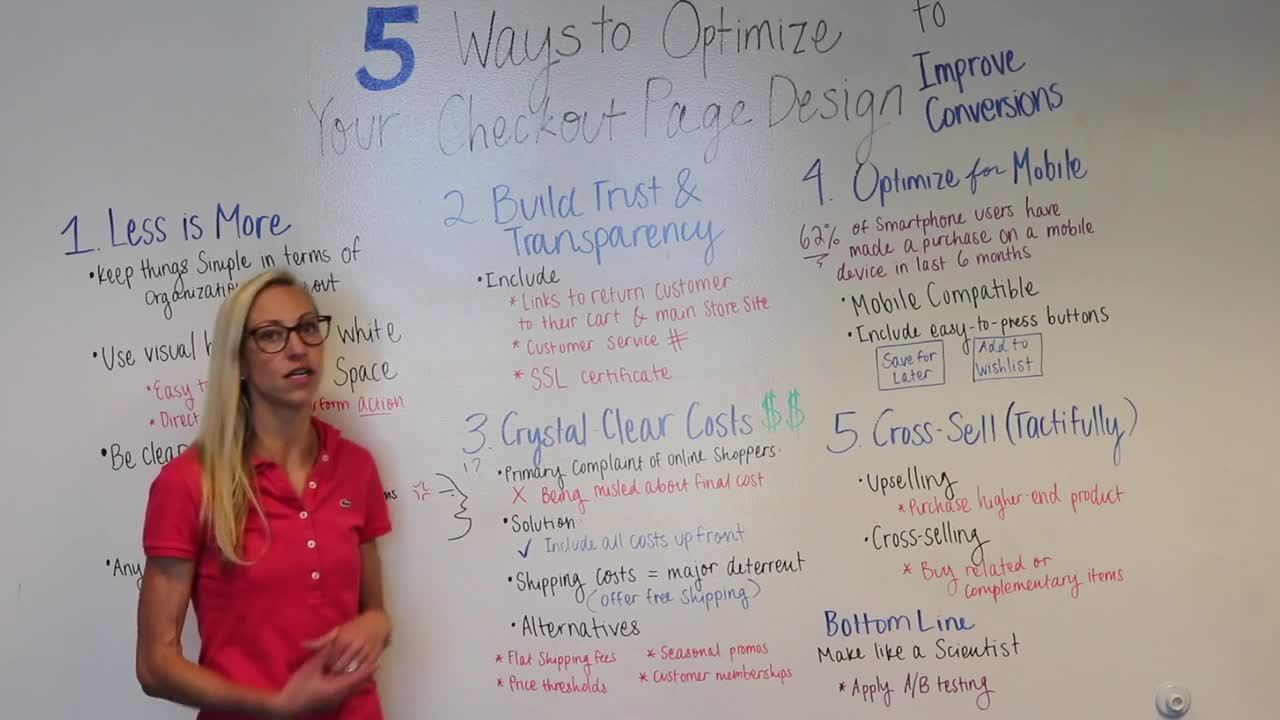 5 Ways to Optimize to
Your Checkout Page Design Improve
Conversions
1. Less is More
•Keep things Simple in terms of
•Use visual white
Space
*Easy
*Direct action
•Be clear
•Any
2. Build Trust &
Transparency
•Include
*Links to return customer
to their cart & main store site
* Customer service #
* SSL certificate
3. Crystal Clear Costs $$
!?
•Primary Complaint of online Shoppers.
X Being misled about final cost
•Solution
✓ Include all costs upfront
•Shipping costs = major deterrent
(offer free shipping)
•Alternatives
* Flat Shipping fees * Seasonal promos
* Price thresholds * Customer memberships
4. Optimize for Mobile
62% of Smartphone users have
made a purchase on a mobile
device in last 6 months
•Mobile Compatible
•Include easy-to-press buttons
Save for
Later
Add to
Wishlist
5. Cross-Sell (Tactifully)
•Upselling
*Purchase higher-end product
•Cross-selling
* Buy related or
complementary items
Bottom Line
Make like a Scientist
* Apply A/B testing